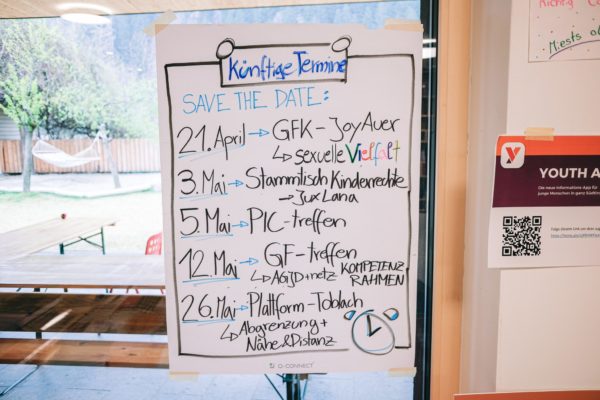 Künftige Termine
SAVE THE DATE:
21. April → GFK - Joy Auer
↳ sexuelle Vielfalt
3. Mai → Stammtisch Kinderrechte
→ Jux Lana
5. Mai → PIC-treffen
12. Mai → GF-treffen
↳ AGJD + netz KOMPETENZ
RAHMEN
26. Mai → Plattform-Toblach
↳ Abgrenzung +
Nähe & Distanz
Q-CONNECT
Richtig
Miests
YOUTH A
Die neue Informations-App für
junge Menschen in ganz Südtirol